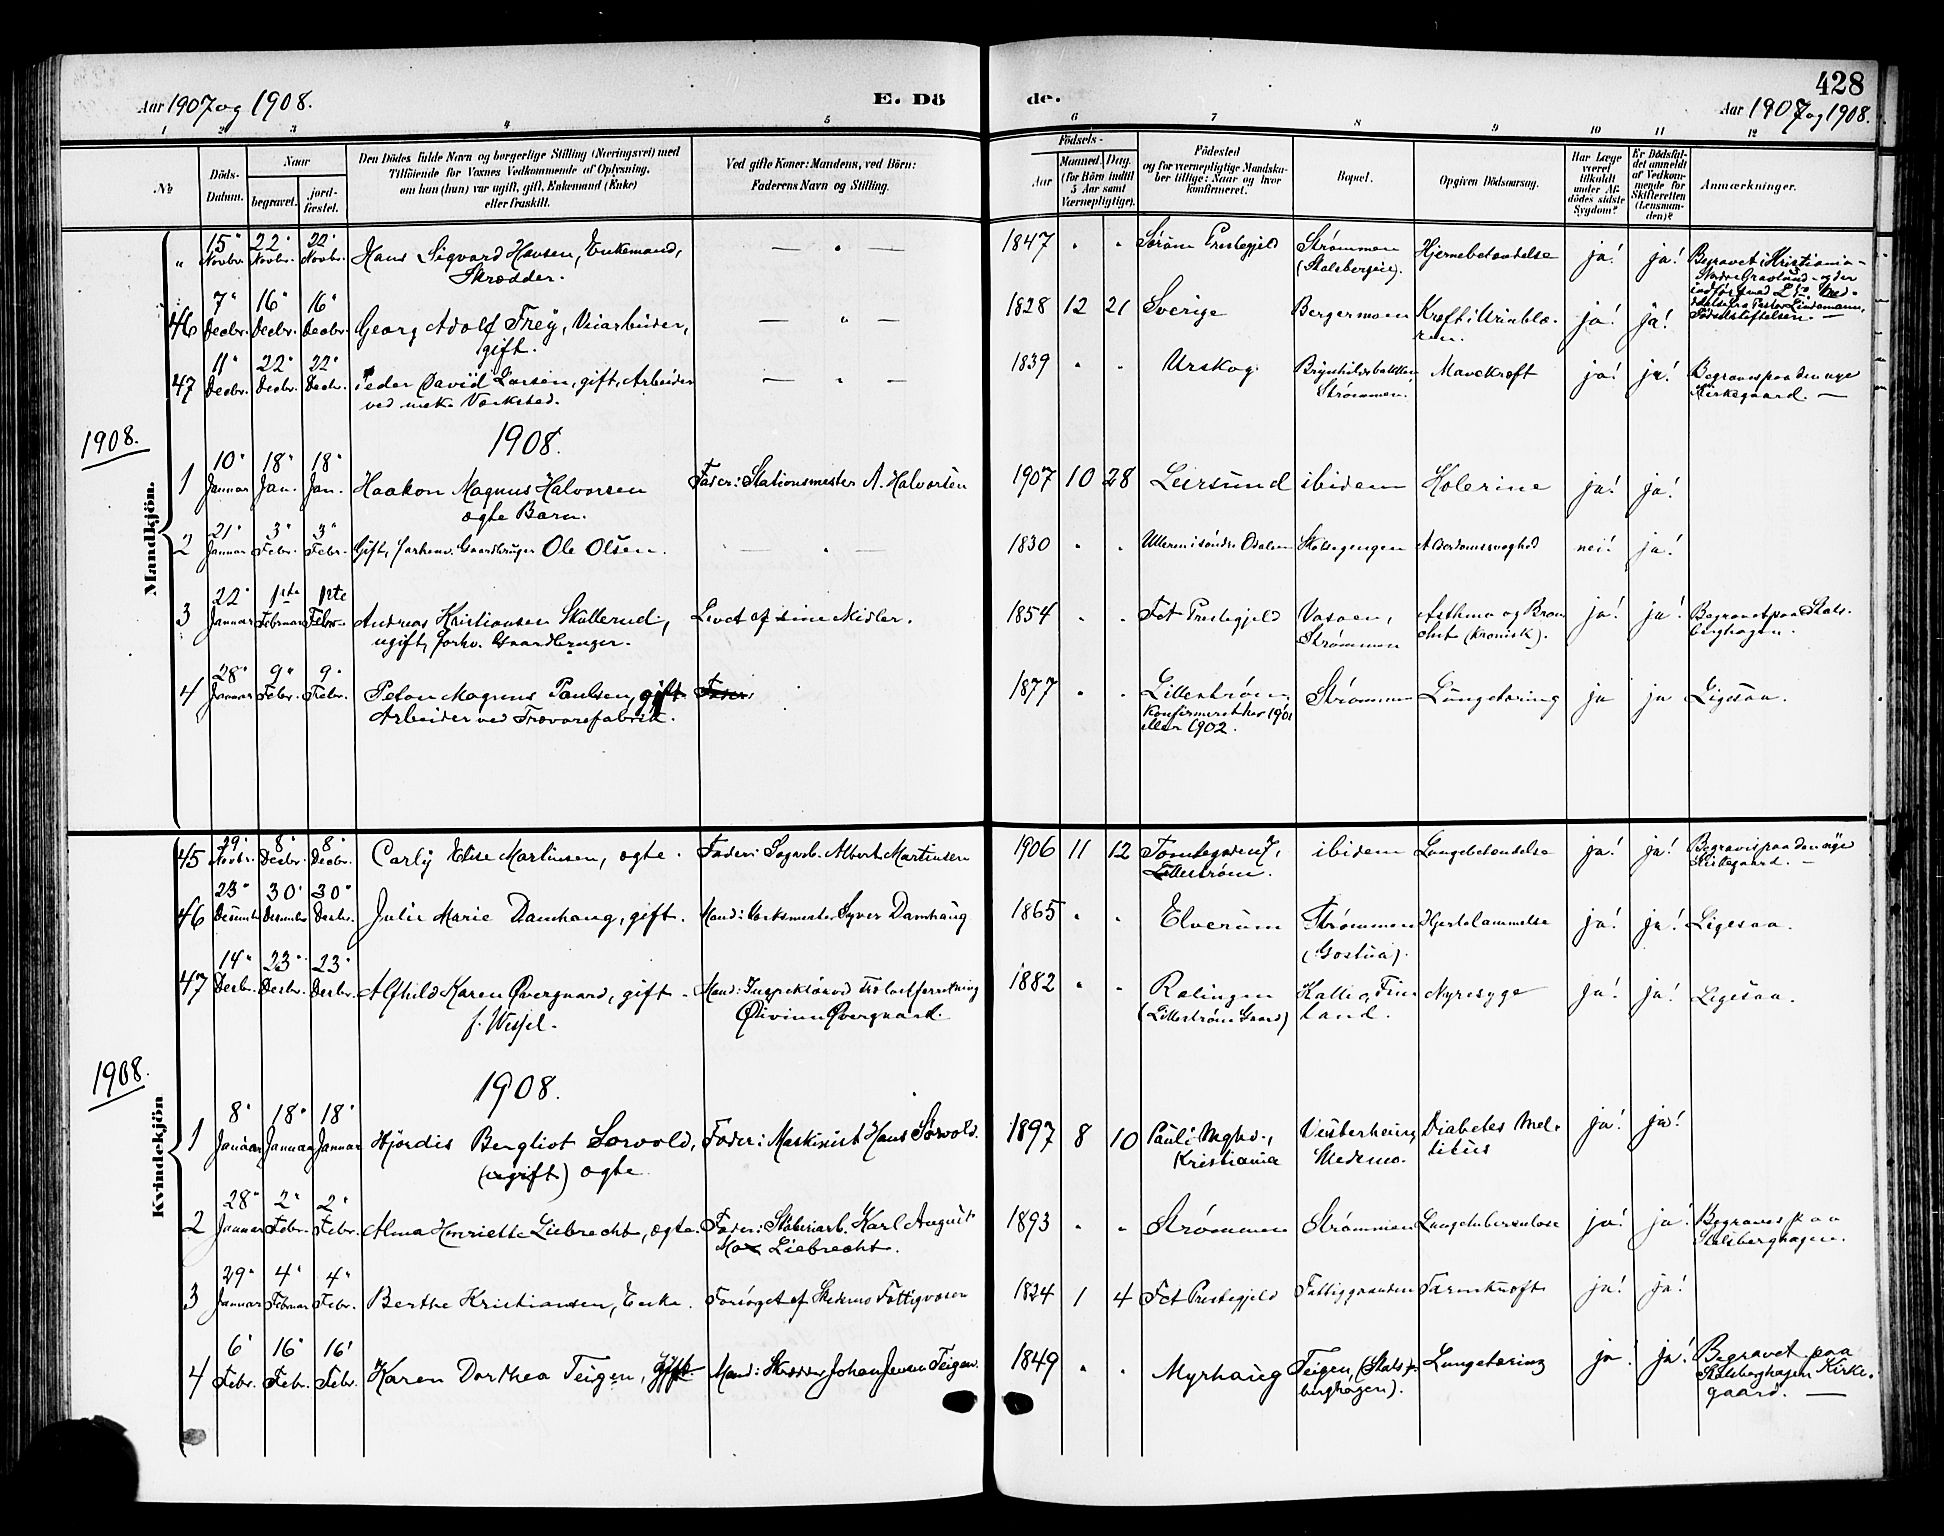 428
Aar 1907 og 1908.
E. Dö
de.
Aar 1907 og 1908.
1 2 3 4 5 6 7 8 9 10 11 12
№
Döds-
Datum.
Naar
begravet.
jord-
fæstet.
Den Dödes fulde Navn og borgerlige Stilling (Næringsvei) med
Tilföiende for Voxnes Vedkommende af Oplysning,
om han (hun) var ugift, gift, Enkemand (Enke)
eller fraskilt.
Ved gifte Koner: Mandens, ved Börn:
Faderens Navn og Stilling.
Födsels-
Aar
Maaned. Dag.
(for Börn indtil
5 Aar samt
Værnepligtige).
Födested
og for værnepligtige Mandska-
ber tillige: Naar og hvor
konfirmeret.
Bopæl.
Opgiven Dödsaarsag.
Har Læge
været
tilkaldt
under Af-
dödes sidste
Sygdom?
Er Dödsfal-
det anmeldt
af Vedkom-
mende for
Skifteretten
(Lensman-
den)?
Anmærkninger.
Mandkjön.
" 15' Novbr. 22' Novbr. 22' Novbr. Hans Sigvard Hansen, Enkemand, — " — 1847 " " Sørum Prestegjeld Strømmen Hjernebetændelse ja! ja! Begravet i Kristiania -
Skrædder. (Stalsbergeie). Nordre Gravlund - og der
46 7' Decbr. 16' Decbr. 16' Decbr. Georg Adolf Frey, Veiarbeider, — " — 1828 12 21 Sverige Bergermoen Kræft i Urinblæ- ja! ja!
gift. ren.
47 11' Decbr. 22' Decbr. 22' Decbr. Peder David Larsen, gift, Arbeider — " — 1839 " " Urskog Brynhildsbakken, Mavekræft ja! ja! Begraves paa den nye
ved mek. Værksted. Strømmen. Kirkegaard. —
1908.
1908.
1 10' Januar 18' Jan. 18' Jan. Haakon Magnus Halvorsen Fader: Stationsmester A. Halvorsen 1907 10 28 Leirsund ibidem Kolerine ja! ja!
ægte Barn.
2 21' Januar 3' Febr. 3' Febr. Gift, forhenv. Gaardbruger Ole Olsen. — " — 1830 " " Ullern i søndre Odalen Alderdomssvaghed nei! ja!
3 22' Januar 1ste Februar 1ste Febr. Andreas Kristiansen Skullerud, Levet af sine Midler. 1854 " " Fet Prestegjeld Vasaen, Asthma og Bron- ja! ja! Begravet paa Stals-
ugift, forhv. Gaardbruger. Strømmen chit (kronisk). berghagen.
4 28' Januar 9' Febr. 9' Febr. Magnus Paulsen, gift Fader: 1877 " " Lillestrøm, Strømmen Lungetæring ja ja Ligesaa.
Arbeider ved Trævarefabrik. Konfirmeret her 1901
eller 1902.
Kvindekjön
45 29' Novbr. 8' Decbr. 8' Decbr. Carly Elise Martinsen, ægte. Fader: Sagarb. Albert Martinsen 1906 11 12 Tomtegaden 7, ibidem Lungebetændelse ja! ja! Begraves paa den nye
Lillestrøm. Kirkegaard. —
46 23' Desember 30' Desember 30' Desbr. Julie Marie Damhaug, gift. Mand: Værksmester Syver Damhaug 1865 " " Elverum Strømmen Hjertelammelse ja! ja! Ligesaa.
47 14' Desbr. 23' Desbr. 23' Desbr. Alfhild Karen Øvergaard, gift. Mand: Inspektør ved Trælastforretning 1882 " " Rælingen Kallio, Fin- Nyresyge ja! ja! Ligesaa.
f. Wessel. Øivinn Øvergaard. (Lillestrøm Gaard) land.
1908.
1908.
1 8' Januar 18' Januar 18' Januar Hjørdis Bergliot Sørvold, Fader: Maskinist Hans Sørvold. 1897 8 10 Pauli Mghd., Vesterheim, Diabetes Mel- ja! ja!
(ugift) ægte. Kristiania Skedsmo. litus
2 28' Januar 2' Febr. 2' Febr. Alma Henriette Liebrecht, ægte. Fader: Støberiarb. Karl August 1893 " " Strømmen Strømmen Lungetuberculose ja! ja! Begraves paa
Max Liebrecht. Stalsberghagen.
3 29' Januar 4' Februar 4' Febr. Berthe Kristiansen, Enke. Forsørget af Skedsmo Fattigvæsen 1824 1 4 Fet Prestegjeld Fattiggaarden Tarmkræft ja! ja!
4 6' Febr. 16' Febr. 16' Febr. Karen Dorthea Teigen, gift Mand: Skrædder Johan Jensen Teigen. 1849 " " Myrhaug Teigen, (Stals- Lungetæring ja! ja! Begravet paa
berghagen). Stalsberghagen Kirke-
gaard. —